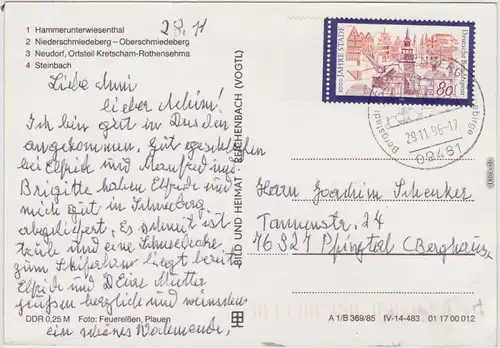 1 Hammerunterwiesenthal
2 Niederschmiedeberg – Oberschmiedeberg
3 Neudorf, Ortsteil Kretscham-Rothensehma
4 Steinbach
28.11
Liebe
lieber Achim!
Ich bin gut in Dresden
angekommen, gut geschlafen
bei Elfride und Manfred und
Brigitte haben Elfride und
mich gut in
abgeliefert. Es schneit ist
trübe und eine Schneedecke
zum Skifahren liegt bereit
Elfride und Deine Mutter
grüßen herzlich und wünschen
ein schönes Wochenende,
DDR 0,25 M Foto: Feuereißen, Plauen
BILD UND HEIMAT · REICHENBACH (VOGTL)
1000 JAHRE STADE
Deutsche Bundespost
80
28.11.96-17
09481
Herrn Joachim Schenker
Tannenstr. 24
76327 Pfinztal (Berghaus.
A 1/B 369/85 IV-14-483 01 17 00 012